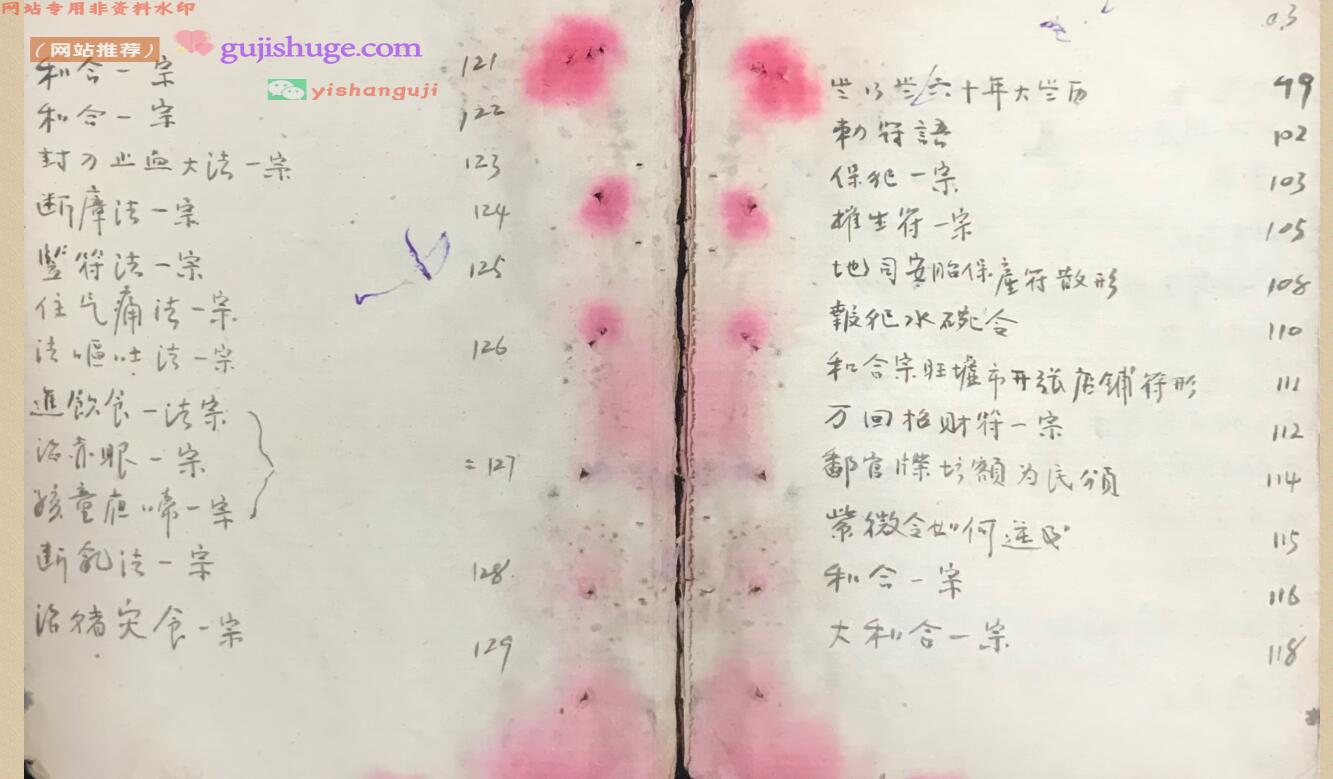 网站专用非资料水印
（网站推荐）
gujishuge.com
yishanguji
和合一宗 121
和合一宗 122
封刀止血大法一宗 123
断瘴法一宗 124
竖符法一宗 125
住气痛法一宗
法嘔吐法一宗 126
進飲食一法宗
治赤眼一宗 =127
孩童夜啼一宗
断乳法一宗 128
治猪灾食一宗 129
03
六十年大 历 99
符語 102
保犯一宗 103
推生符一宗 105
地司安胎保産符散形 108
報犯水碗令 110
和合宗旺墟市开張店鋪符形 111
万回招财符一宗 112
为民 114
紫微令如何 115
和合一宗 116
大和合一宗 118